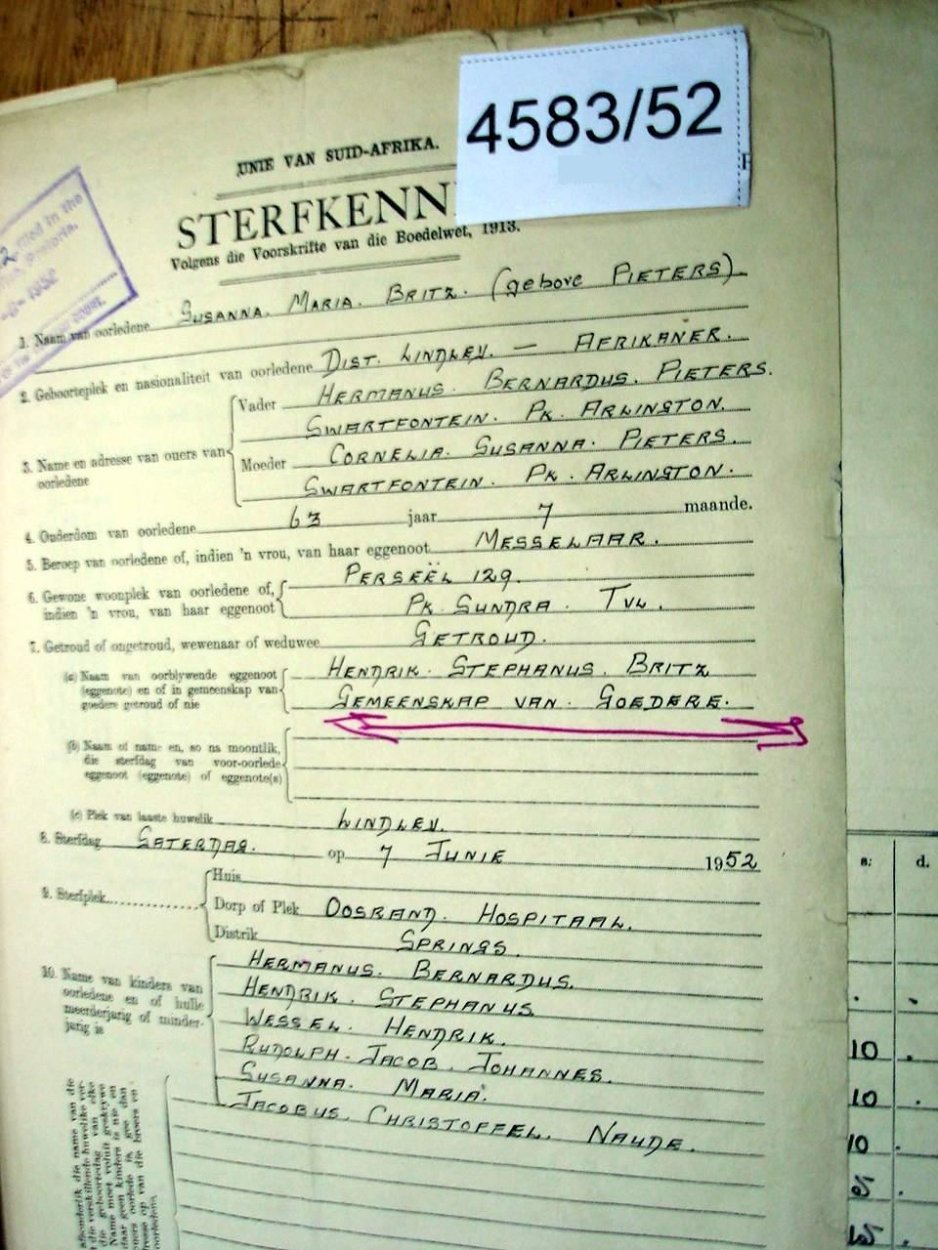 4583/52
UNIE VAN SUID-AFRIKA.
STERFKENN
Volgens die Voorskrifte van die Boedelwet, 1913.
filed in the
Pretoria.
1952
1. Naam van oorledene SUSANNA. MARIA. BRITZ. (gebore PIETERS)
2. Geboorteplek en nasionaliteit van oorledene DIST. LINDLEY. — AFRIKANER.
3. Name en adresse van ouers van oorledene
Vader HERMANUS. BERNARDUS. PIETERS.
SWARTFONTEIN. PK. ARLINGTON.
Moeder CORNELIA. SUSANNA. PIETERS.
SWARTFONTEIN. PK. ARLINGTON.
4. Ouderdom van oorledene 63 jaar 7 maande.
5. Beroep van oorledene of, indien 'n vrou, van haar eggenoot MESSELAAR.
6. Gewone woonplek van oorledene of, PERSEËL 129.
indien 'n vrou, van haar eggenoot PK. SUNDRA. TVL.
7. Getroud of ongetroud, wewenaar of weduwee GETROUD.
(a) Naam van oorblywende eggenoot HENDRIK. STEPHANUS. BRITZ
(eggenote) en of in gemeenskap van
goedere getroud of nie GEMEENSKAP VAN. GOEDERE.
(b) Naam of name en, so na moontlik,
die sterfdag van voor-oorlede
eggenoot (eggenote) of eggenote(s)
(c) Plek van laaste huwelik LINDLEY.
8. Sterfdag SATERDAG. op 7 JUNIE 1952
9. Sterfplek
Huis
Dorp of Plek OOSRAND. HOSPITAAL.
Distrik SPRINGS.
10. Name van kinders van
oorledene en of hulle
meerderjarig of minder-
jarig is
HERMANUS. BERNARDUS.
HENDRIK. STEPHANUS
WESSEL. HENDRIK.
RUDOLPH. JACOB. JOHANNES.
SUSANNA. MARIA.
JACOBUS. CHRISTOFFEL. NAUDE.
afsonderlik die name van die
die geboortedag van elke
Name moet voluit geskrywe
daar geen kinders is nie en
ouers oorlede is, gee dan
adresse op van die broers en
s. d.
10
10
10